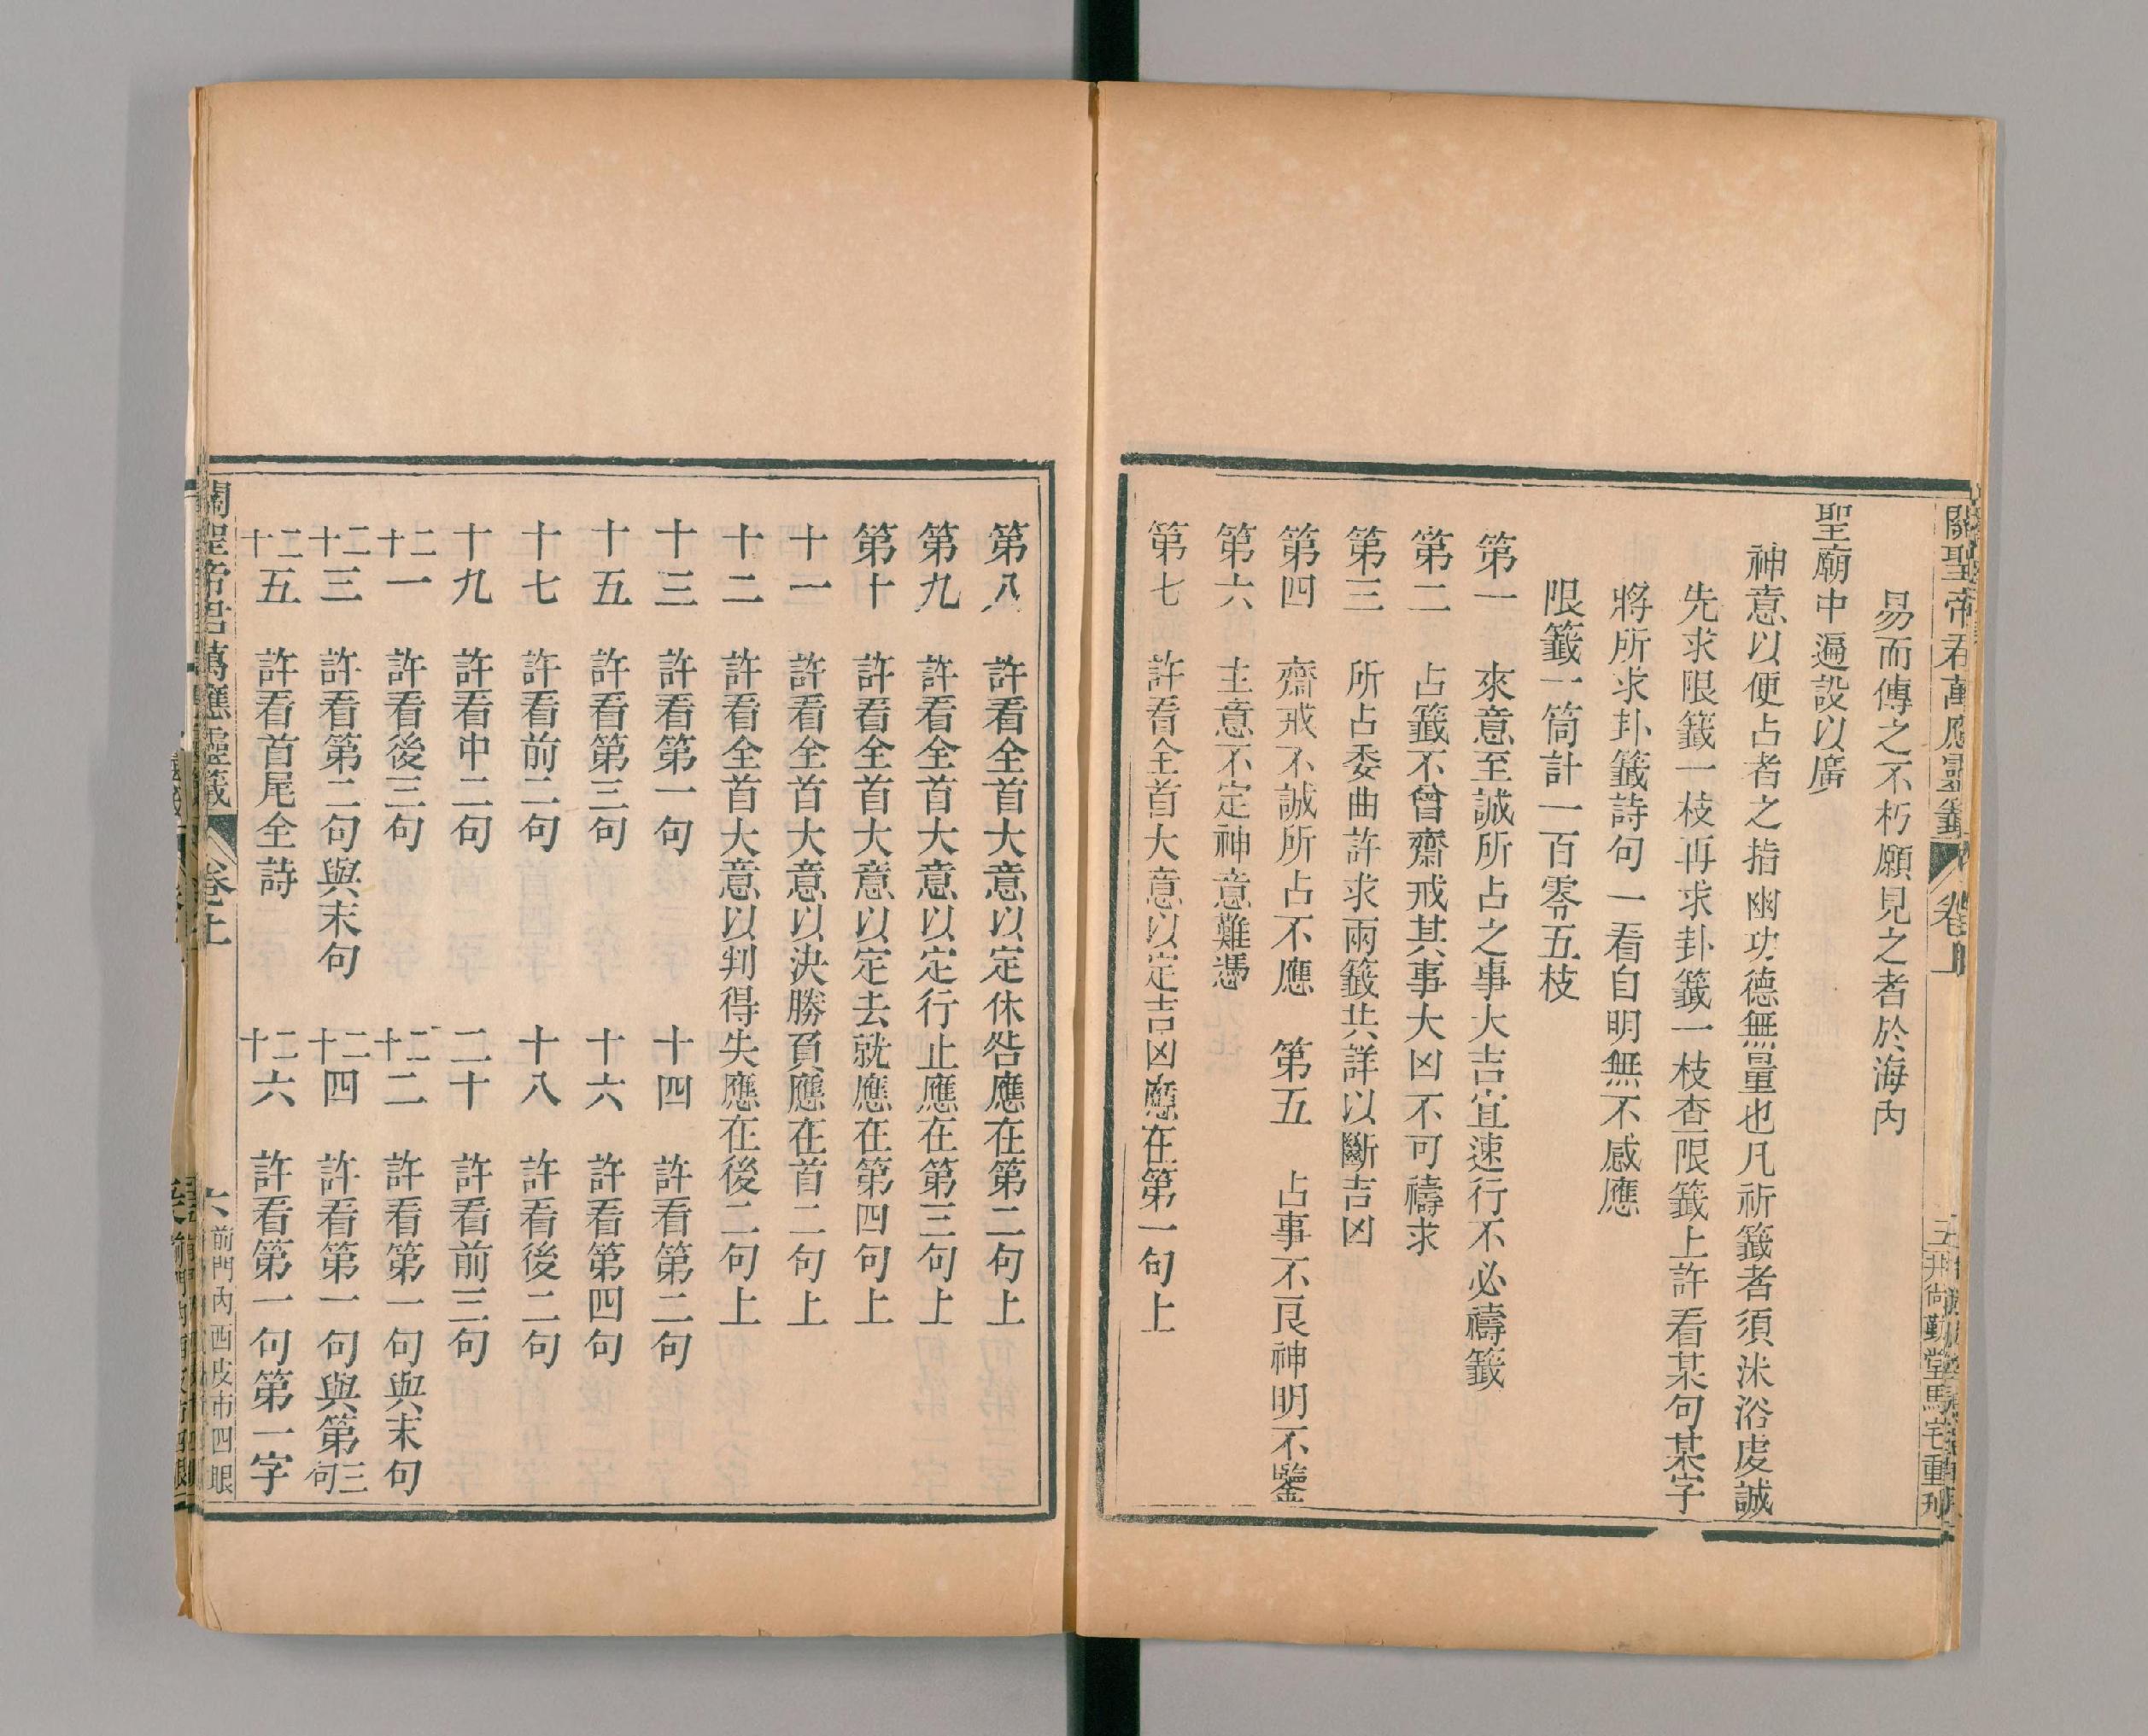 關聖帝君萬應靈籤 卷上 五 井尙勤堂馬宅重刊
易而傳之不朽願見之者於海內
聖廟中遍設以廣
神意以便占者之指幽功德無量也凡祈籤者須沐浴虔誠
先求限籤一枝再求卦籤一枝查限籤上許看某句某字
將所求卦籤詩句一看自明無不感應
限籤一筒計一百零五枝
第一 來意至誠所占之事大吉宜速行不必禱籤
第二 占籤不曾齋戒其事大凶不可禱求
第三 所占委曲許求兩籤共詳以斷吉凶
第四 齋戒不誠所占不應 第五 占事不良神明不鑒
第六 主意不定神意難憑
第七 許看全首大意以定吉凶應在第一句上
第八 許看全首大意以定休咎應在第二句上
第九 許看全首大意以定行止應在第三句上
第十 許看全首大意以定去就應在第四句上
十一 許看全首大意以決勝負應在首二句上
十二 許看全首大意以判得失應在後二句上
十三 許看第一句 十四 許看第二句
十五 許看第三句 十六 許看第四句
十七 許看前二句 十八 許看後二句
十九 許看中二句 二十 許看前三句
二十一 許看後三句 二十二 許看第一句與末句
二十三 許看第二句與末句 二十四 許看第一句與第三句
二十五 許看首尾全詩 二十六 許看第一句第一字
關聖帝君萬應靈籤 卷上 六 前門內西皮市四眼